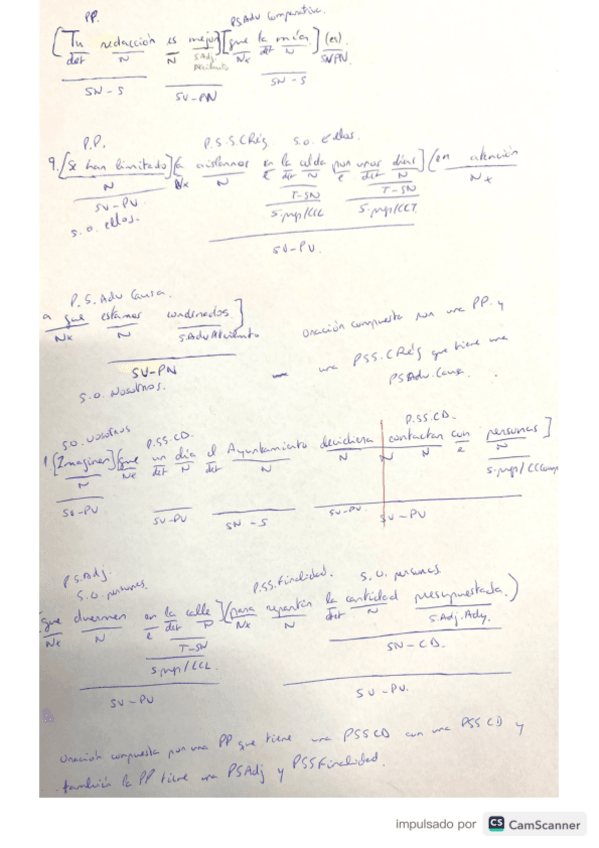 PP. PSAdv Comparativa.
[Tu redacción es mejor] [que la mía] (es)
det N N SAdj. Nx det N SVPN
Atributo
SN - S SV - PN SN - S
P.P. P.S.S.CRég. S.O. ellos.
9. [Se han limitado] [a aislarnos en la celda por unos días] (en atención
N Nx N E det N E det N Nx
SV - PV. T-SN T-SN
S.O. ellos. S.prep/CCL S.prep/CCT
SV - PV.
P.S. Adv Causa.
a que estamos condenados]
Nx N SAdvAtributo
SV - PN
S.O. Nosotros.
Oración compuesta por una PP. y
una PSS. CRég que tiene una
PSAdv. Causa.
S.O. Nosotros P.SS.CD. P.SS.CD.
1 [Imaginen] [que un día el Ayuntamiento decidiera contactar con personas]
N Nx det N det N N N N e N
S.prep/CCComp
SV - PV SV - PV SN - S SV - PV SV - PV
P.S.Adj. P.SS.Finalidad. S.O. personas
S.O. personas.
[que duermen en la calle] [para repartir la cantidad presupuestada.)
Nx N e det N Nx N det. N SAdj. Ady.
T-SN SN - CD.
S.prep/CCL.
SV - PV SV - PV.
Oración compuesta por una PP que tiene una PSSCD con una PSSCD y
también la PP tiene una PSAdj y PSSFinalidad.
impulsado por CS CamScanner